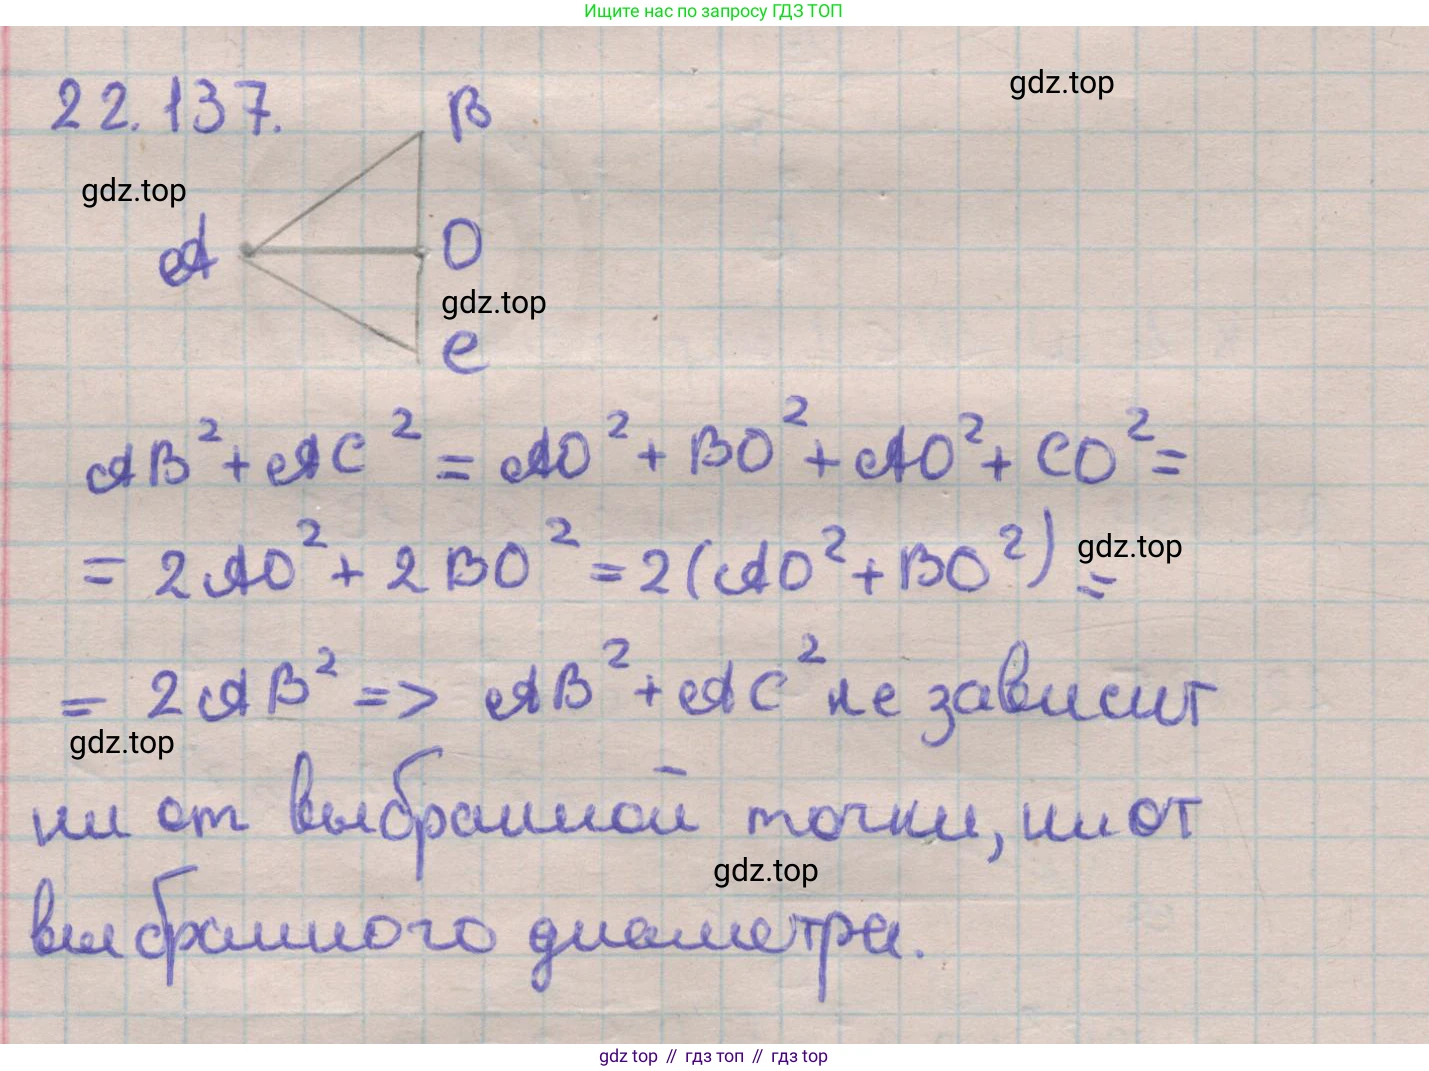 Ищите нас по запросу ГДЗ ТОП
gdz.top
22.137.
B
gdz.top
A
O
gdz.top
C
AB² + AC² = AO² + BO² + AO² + CO² =
= 2AO² + 2BO² = 2(AO² + BO²) =
gdz.top
= 2AB² => AB² + AC² не зависит
gdz.top
ни от выбранной точки, ни от
gdz.top
выбранного диаметра.
gdz top // гдз топ // gdz top